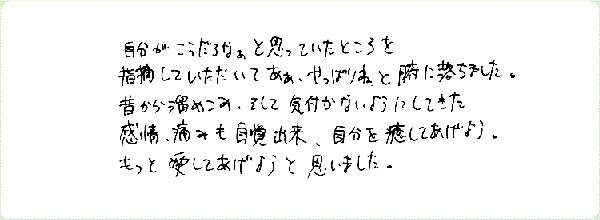 自分がこうだろなぁと思っていたところを
指摘していただいてあぁ、やっぱりねと腑に落ちました。
昔から溜めこみ、そして気付かないようにしてきた
感情、痛みも自覚出来、自分を癒してあげよう。
もっと愛してあげようと思いました。